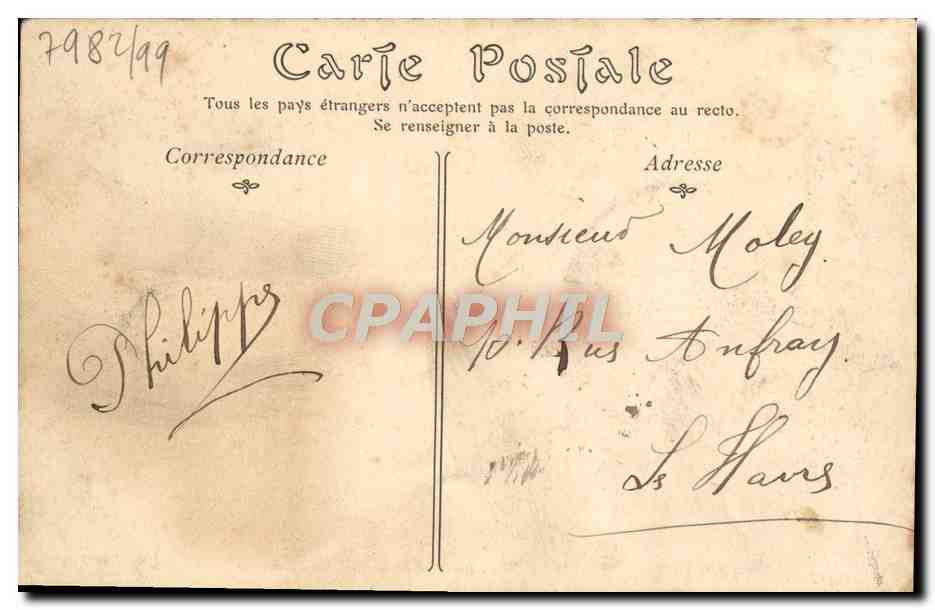 7982/99
Carte Postale
Tous les pays étrangers n'acceptent pas la correspondance au recto.
Se renseigner à la poste.
Correspondance
Adresse
Monsieur Moley
Philippe
CPAPHIL
Rue Anfray.
Le Havre